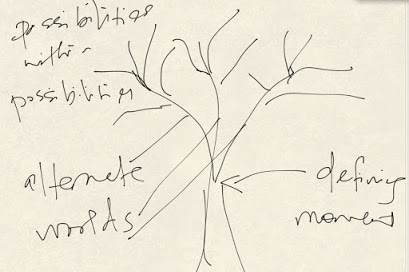 possibilities
within
possibilities
alternate
worlds
defining
moment